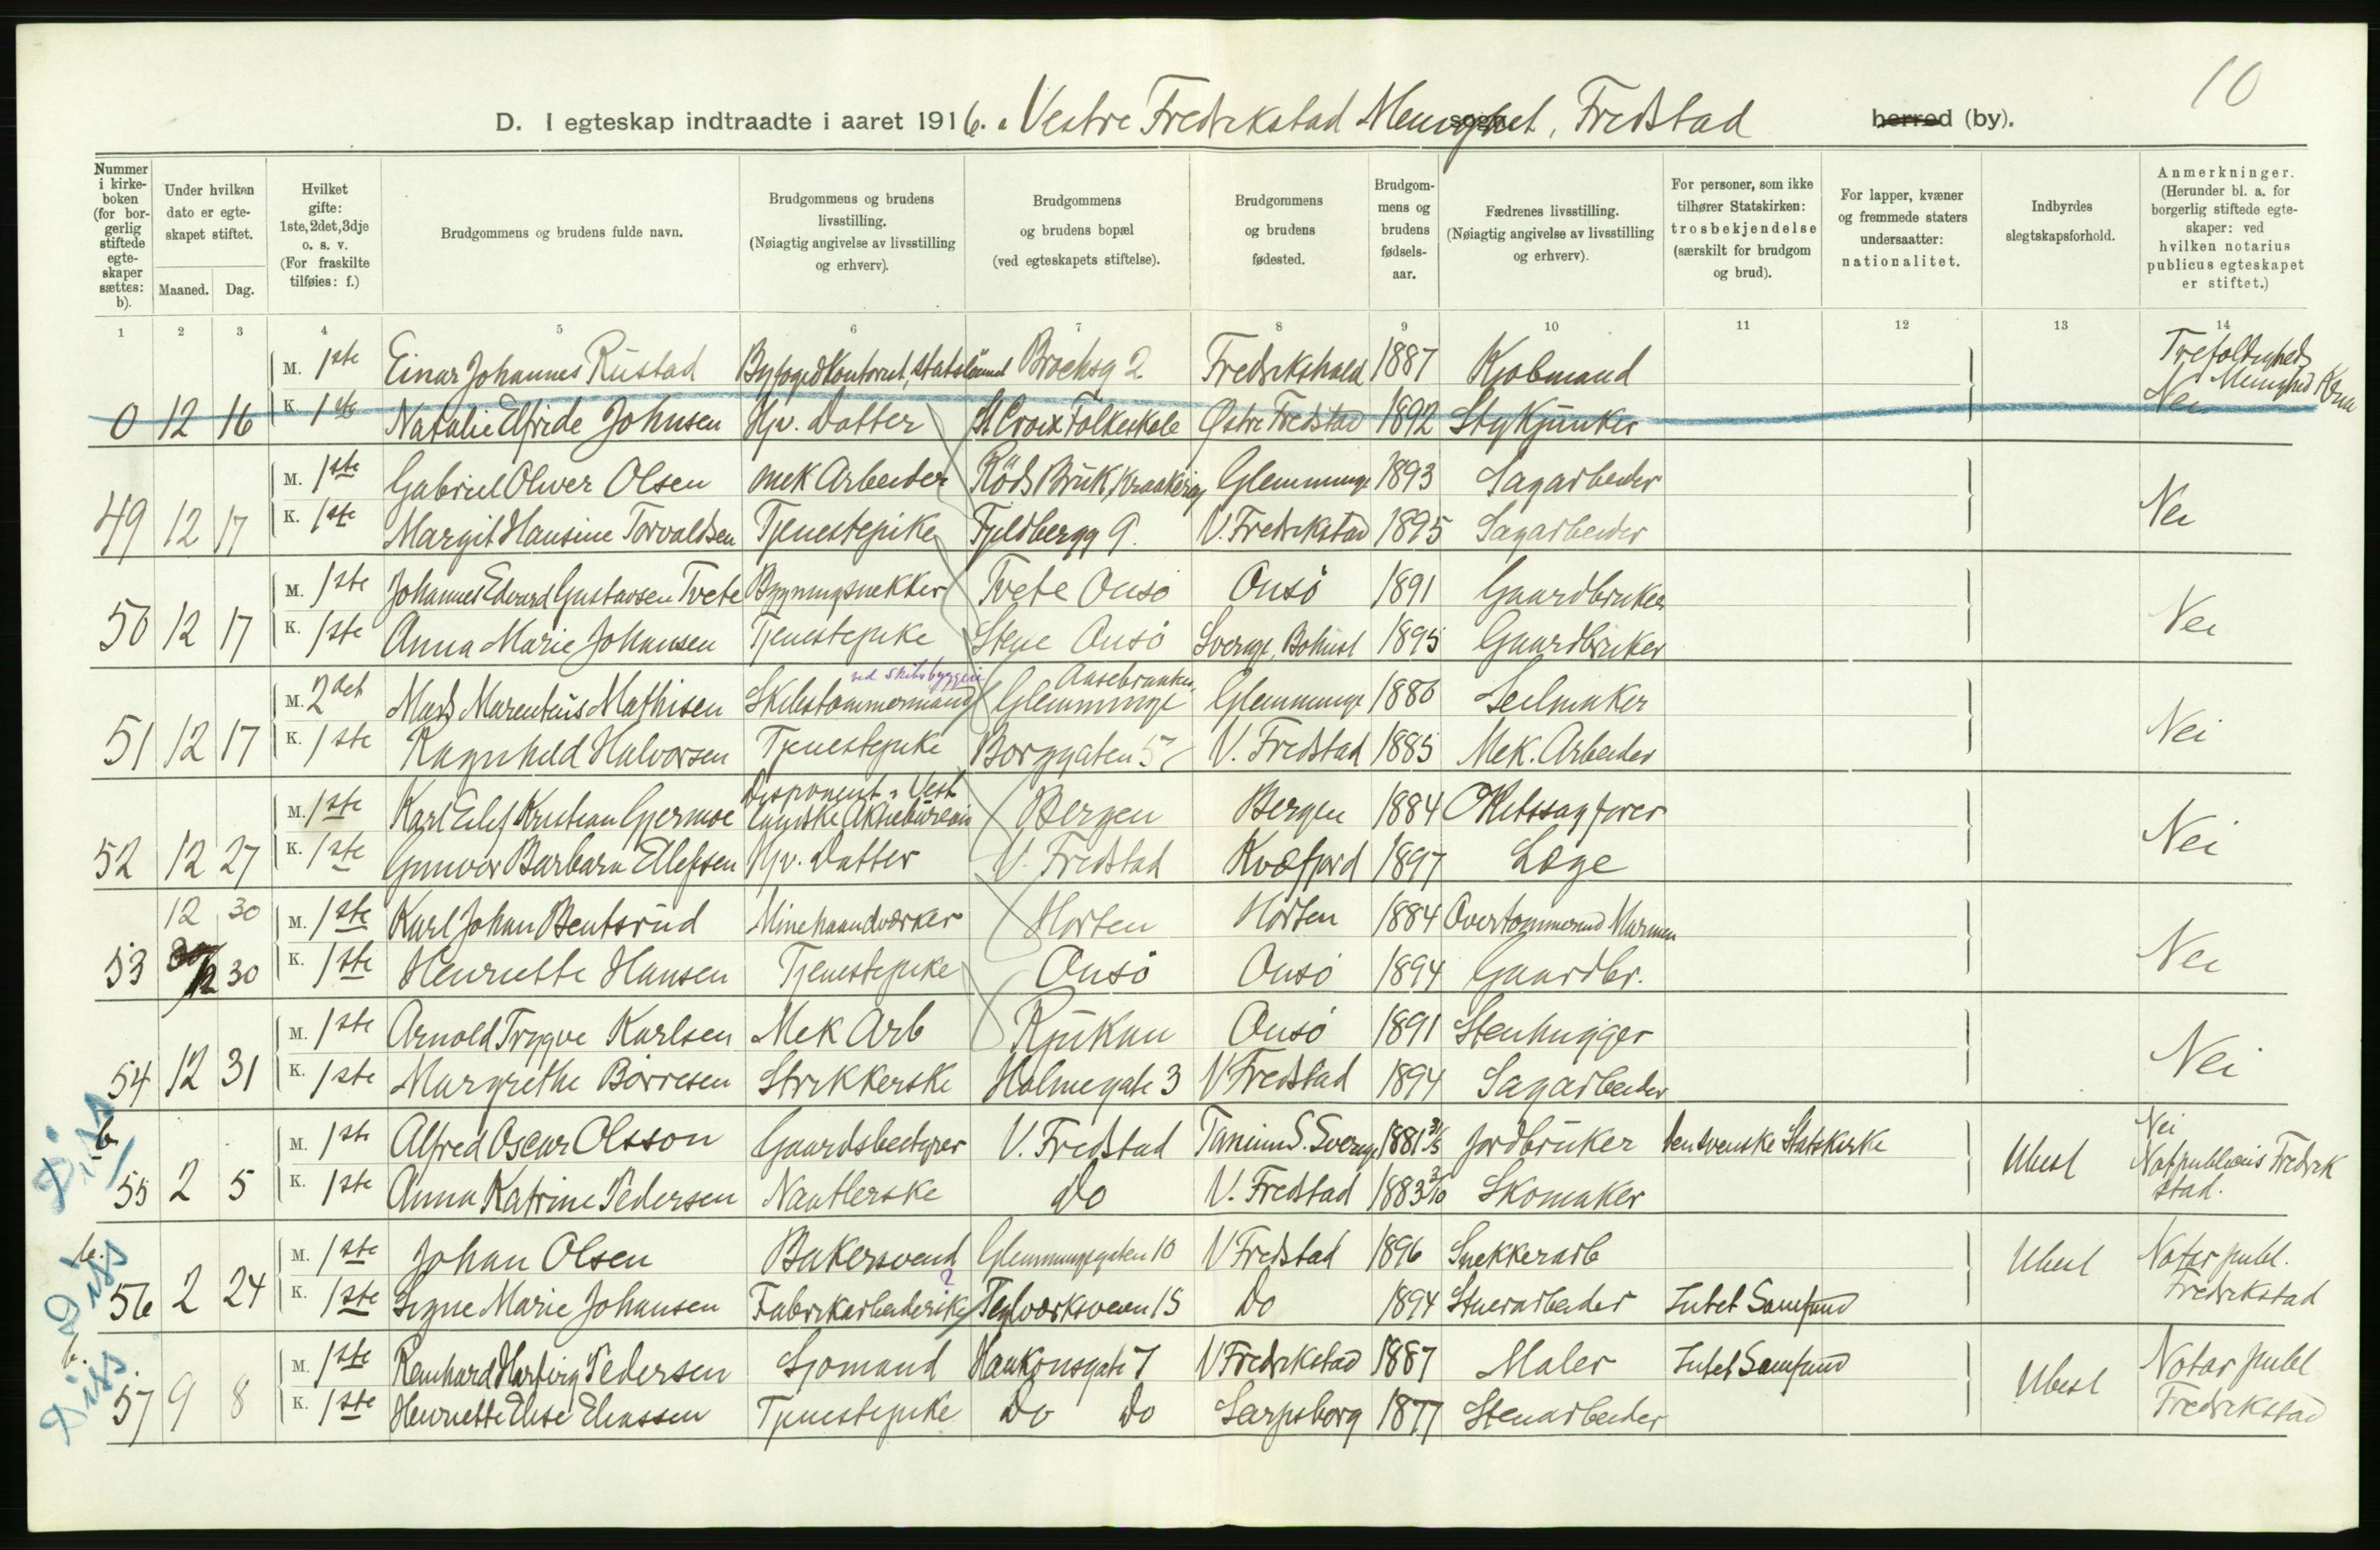 10
D. I egteskap indtraadte i aaret 1916. Vestre Fredrikstad Menighet, Fredstad herred (by).
Nummer i kirkeboken (for borgerlig stiftede egteskaper sættes: b).
Under hvilken dato er egteskapet stiftet.
Maaned. Dag.
Hvilket gifte: 1ste, 2det, 3dje o. s. v. (For fraskilte tilføies: f.)
Brudgommens og brudens fulde navn.
Brudgommens og brudens livsstilling. (Nøiagtig angivelse av livsstilling og erhverv).
Brudgommens og brudens bopæl (ved egteskapets stiftelse).
Brudgommens og brudens fødested.
Brudgommens og brudens fødselsaar.
Fædrenes livsstilling. (Nøiagtig angivelse av livsstilling og erhverv).
For personer, som ikke tilhører Statskirken: trosbekjendelse (særskilt for brudgom og brud).
For lapper, kvæner og fremmede staters undersaatter: nationalitet.
Indbyrdes slegtskapsforhold.
Anmerkninger. (Herunder bl. a. for borgerlig stiftede egteskaper: ved hvilken notarius publicus egteskapet er stiftet.)
1 2 3 4 5 6 7 8 9 10 11 12 13 14
M. 1ste Einar Johannes Rustad Byfogedkontoret, statslönnet Brochsg 2 Fredrikshald 1887 Kjobmand Trefoldigheds Menighed Kr.a
0 12 16 K. 1ste Natalie Elfride Johnsen Hjv. Datter St Croix Folkeskole Østre Fredstad 1892 Stykjunker Nei
M. 1ste Gabriel Oliver Olsen Mek Arbeider Röds Bruk, Kraakeröy Glemminge 1893 Sagarbeider
49 12 17 K. 1ste Margit Hansine Torvaldsen Tjenestepike Fjeldbergg 9. V. Fredrikstad 1895 Sagarbeider Nei
M. 1ste Johannes Edvard Gustavsen Tvete Bygningsnekker Tvete Onsö Onsö 1891 Gaardbruker
50 12 17 K. 1ste Anna Marie Johansen Tjenestepike Stene Onsö Sverige, Bohusl 1895 Gaardbruker Nei
ved Skibsbyggeri
M. 2det Mads Marentius Mathisen Skibstommermand Glemminge Glemminge 1880 Seilmaker
51 12 17 K. 1ste Ragnhild Halvorsen Tjenestepike Borggaten 57 V. Fredstad 1885 Mek. Arbeider Nei
M. 1ste Karl Eilef Kristian Gjermoe Disponent i Vestlandske Aktiebureau Bergen Bergen 1884 ORetssagforer
52 12 27 K. 1ste Gunvor Barbara Ellefsen Hjv. Datter V. Fredstad Kvæfjord 1897 Læge Nei
12 30 M. 1ste Karl Johan Bentsrud Minehaandværker Horten Horten 1884 Overtommermd Marinen
53 12 30 K. 1ste Henriette Hansen Tjenestepike Onsö Onsö 1894 Gaardbr. Nei
M. 1ste Arnold Trygve Karlsen Mek Arb Rjukan Onsö 1891 Stenhugger
54 12 31 K. 1ste Margrethe Börresen Strikkerske Holmegate 3 V Fredstad 1894 Sagarbeider Nei
Diss b. M. 1ste Alfred Oscar Olsson Gaardsbestyrer V. Fredstad Tanum S. Sverige 1881 Jordbruker den svenske Statskirke Nei
55 2 5 K. 1ste Anna Katrine Pedersen Naatlerske Do V. Fredstad 1883 Skomaker Ubesl Notpublicus Fredrikstad.
Diss b. M. 1ste Johan Olsen Bakersvend Glemmingegaten 10 V Fredstad 1896 Snekkerarb
56 2 24 K. 1ste Signe Marie Johansen Fabrikarbeiderske ? Teglverksveien 15 Do 1894 Stuerarbeider Intet Samfund Ubesl Notar publ. Fredrikstad
Diss b. M. 1ste Reinhard Hartvig Pedersen Sjomand Haakonsgate 7 V Fredrikstad 1887 Maler Intet Samfund
57 9 8 K. 1ste Henriette Elise Eliassen Tjenestepike Do Do Sarpsborg 1877 Stenarbeider Ubesl Notar publ Fredrikstad